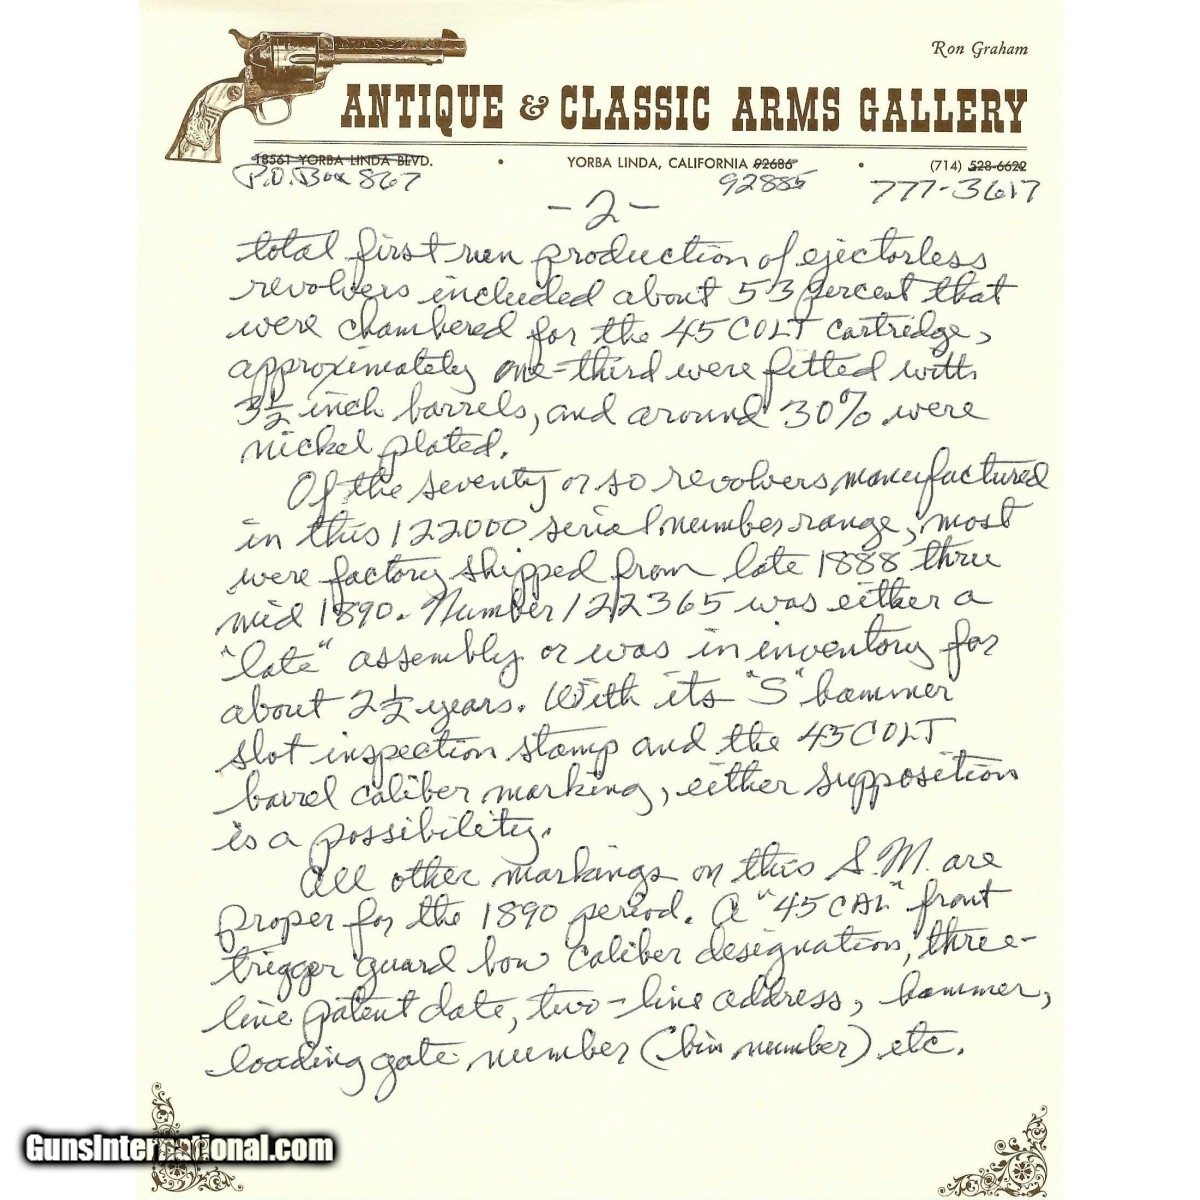 Ron Graham
ANTIQUE & CLASSIC ARMS GALLERY
18561 YORBA LINDA BLVD. • YORBA LINDA, CALIFORNIA 92686 • (714) 528-6622
P.O. Box 867 92885 777-3617
-2-
total first run production of ejectorless
revolvers included about 53 percent that
were chambered for the 45 COLT cartridge,
approximately one-third were fitted with
3½ inch barrels, and around 30% were
nickel plated.
Of the seventy or so revolvers manufactured
in this 122000 serial number range, most
were factory shipped from late 1888 thru
mid 1890. Number 122365 was either a
"late" assembly or was in inventory for
about 2½ years. With its "S" hammer
slot inspection stamp and the 45 COLT
barrel caliber marking, either supposition
is a possibility.
All other markings on this S.M. are
proper for the 1890 period. A "45 CAL" front
trigger guard bow caliber designation, three-
line patent date, two-line address, hammer,
loading gate number (bin number) etc.
GunsInternational.com